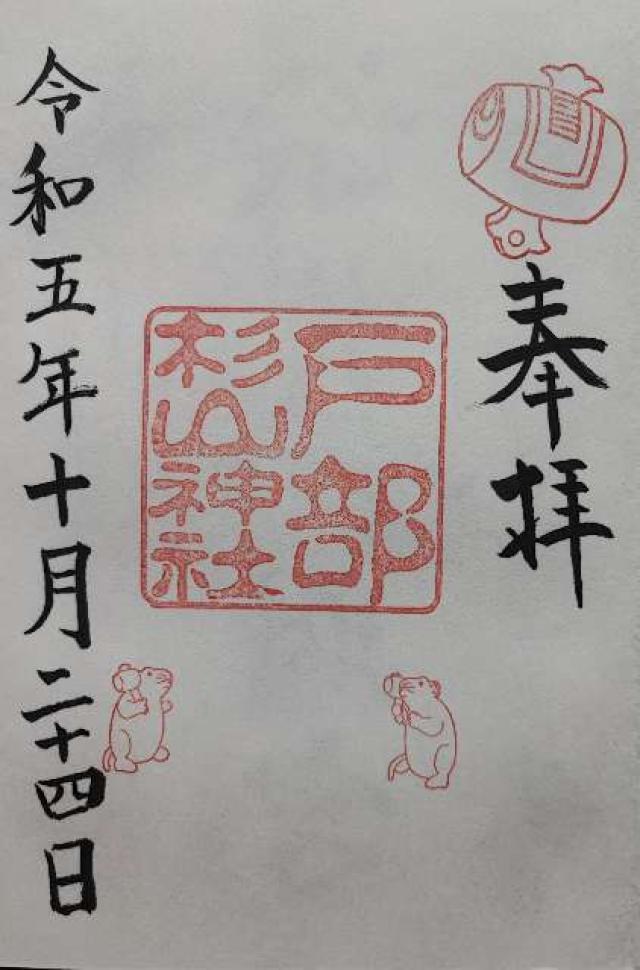 奉拝
戸部
杉山
神社
令和五年十月二十四日